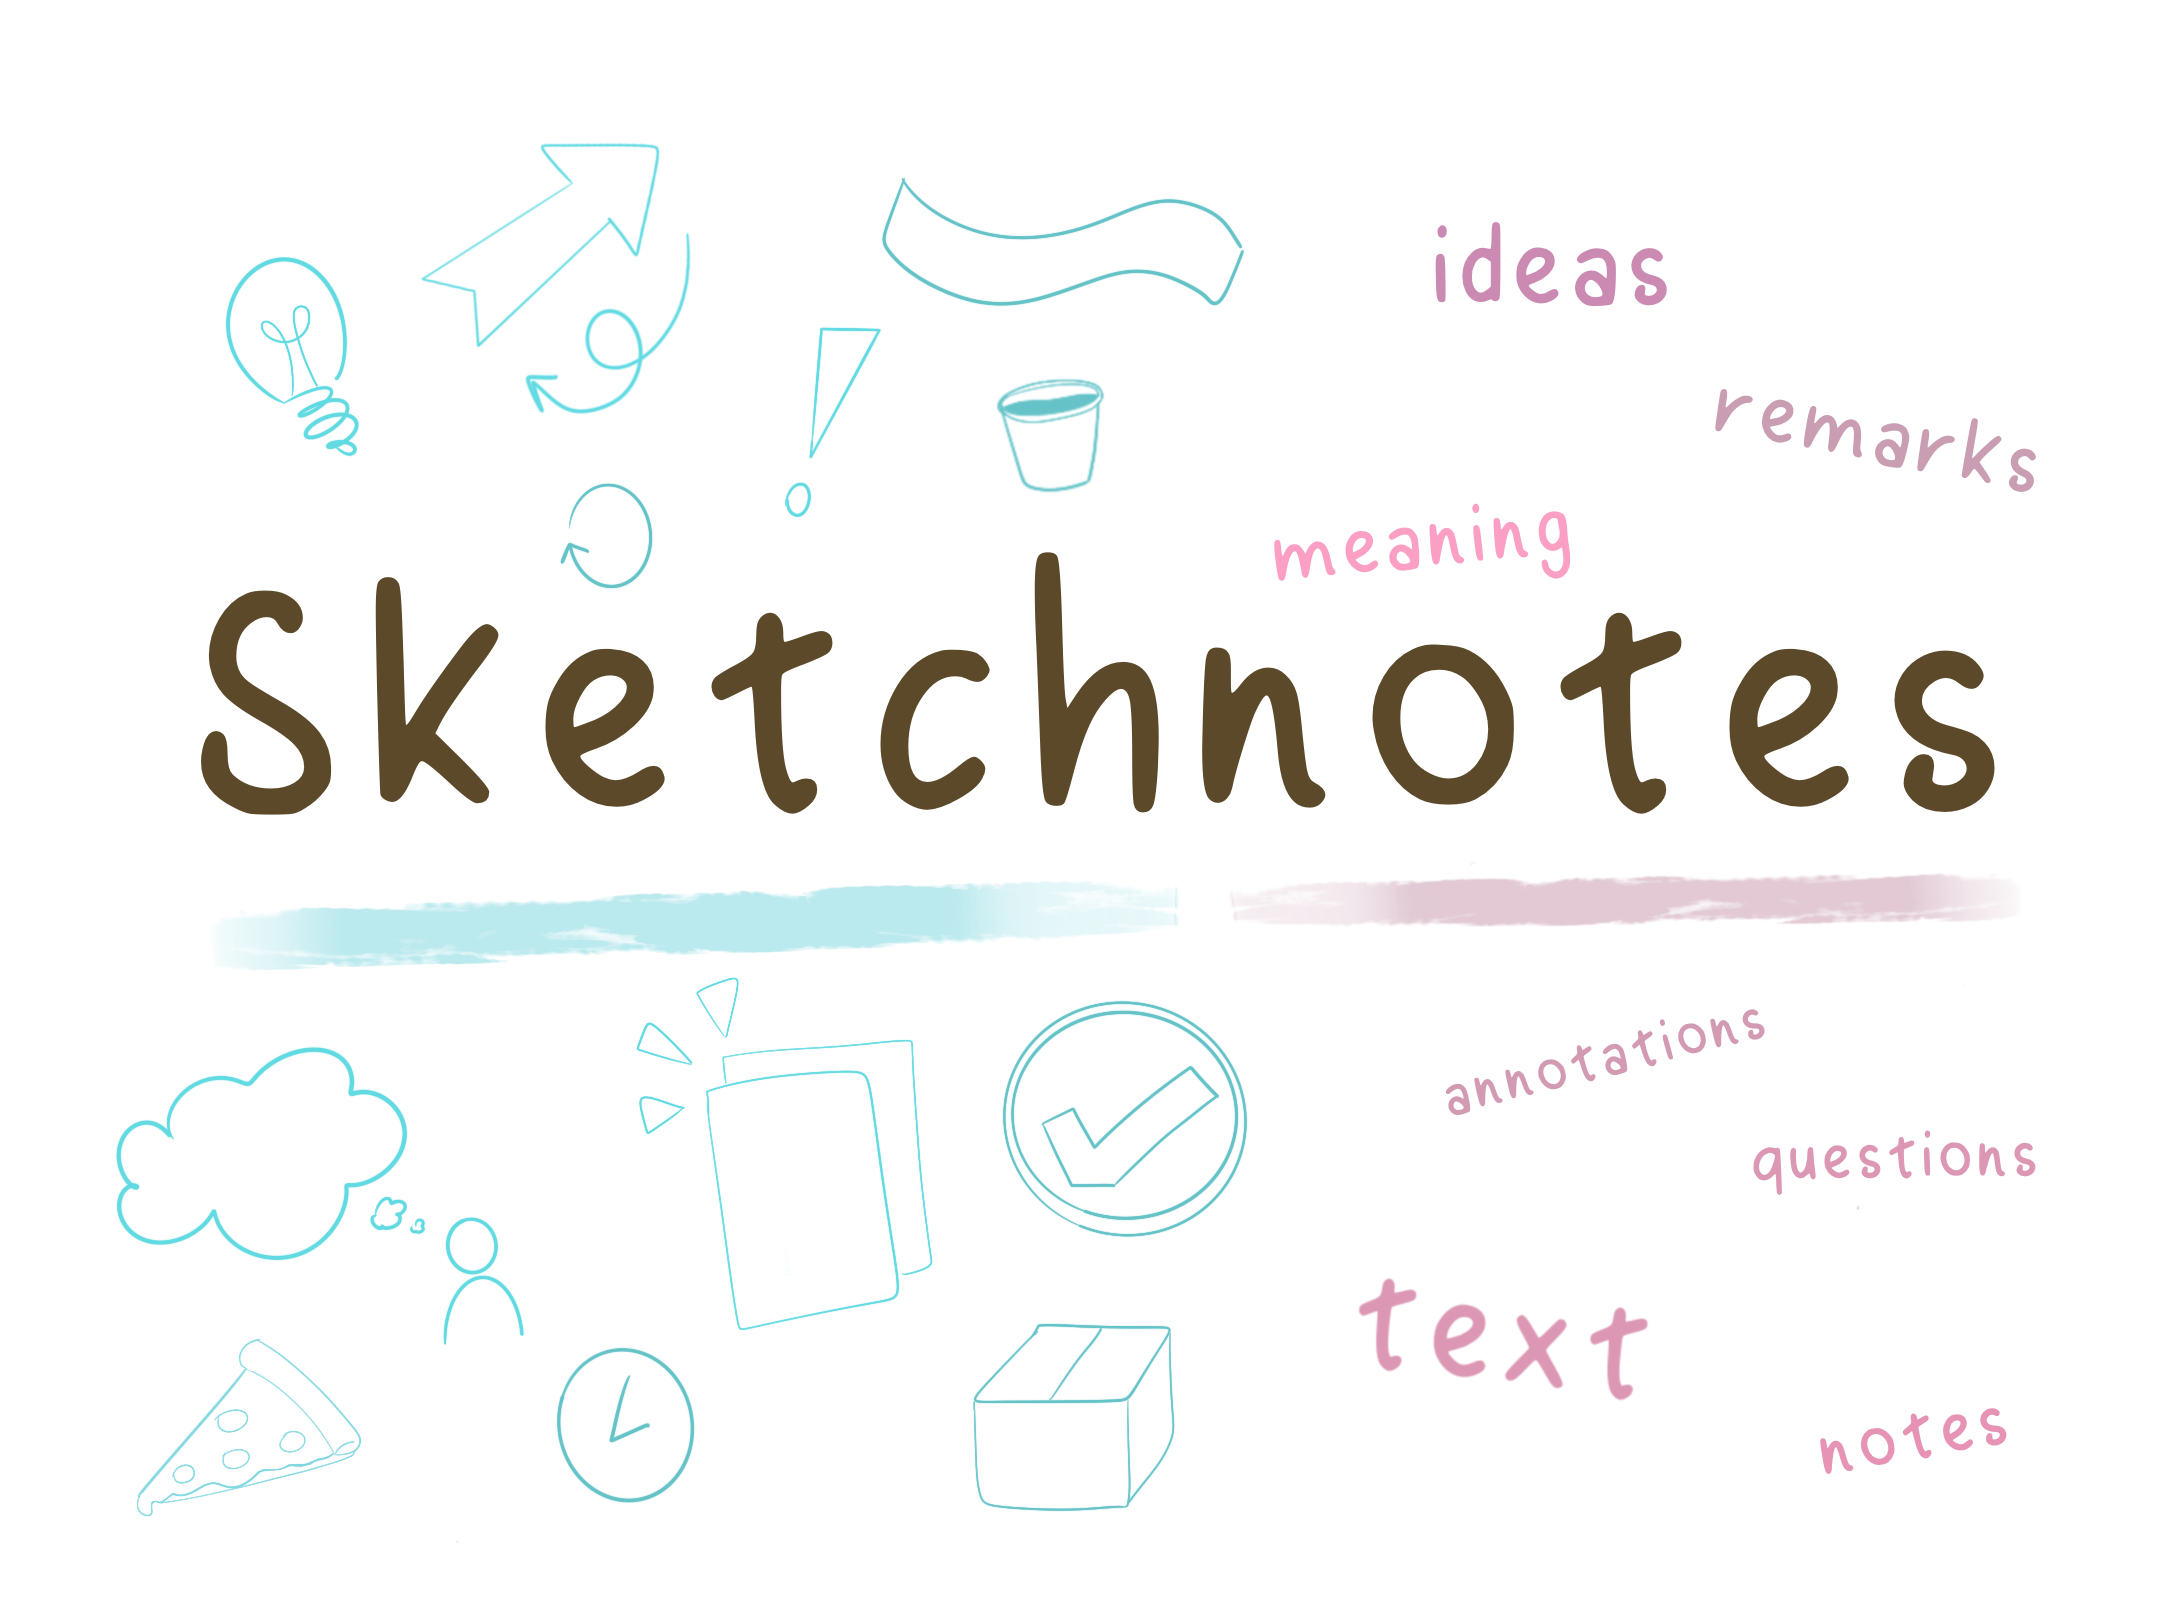 ideas
remarks
meaning
Sketchnotes
annotations
questions
text
notes